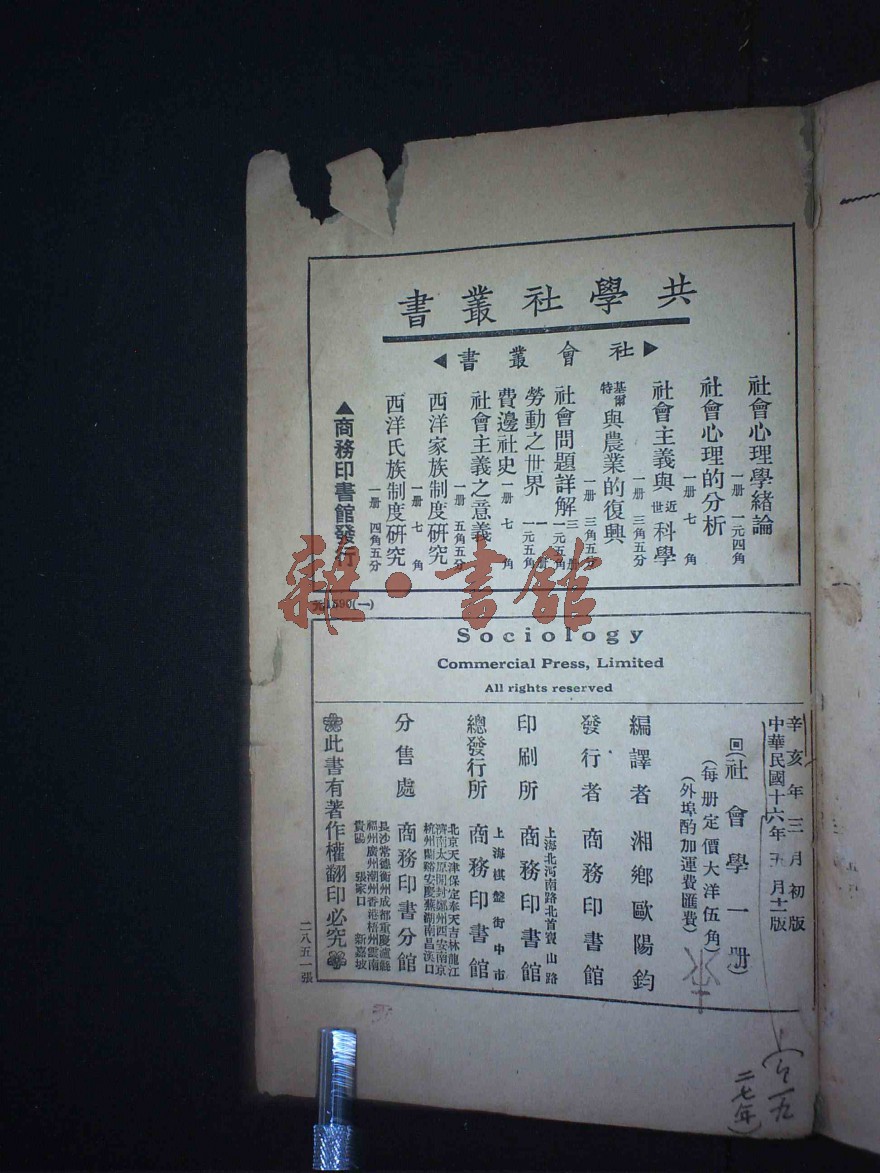 共學社叢書
社會叢書
社會心理學緒論 一册 一元四角
社會心理的分析 一册 七角
社會主義與近世科學 一册 三角五分
基爾特與農業的復興 一册 三角五分
社會問題詳解 三册 一元五角
勞動之世界 一册 一元五角
費邊社史 一册 七角
社會主義之意義 一册 五角五分
西洋家族制度研究 一册 七角
西洋氏族制度研究 一册 四角五分
▲商務印書館發行
元1590(一)
雜·書館
Sociology
Commercial Press, Limited
All rights reserved
辛亥年三月初版
中華民國十六年五月十一版
回(社會學一册)
(每册定價大洋伍角)
(外埠酌加運費匯費)
編譯者 湘鄉歐陽鈞
發行者 商務印書館
印刷所 上海北河南路北首寶山路 商務印書館
總發行所 上海棋盤街中市 商務印書館
分售處 商務印書分館
北京天津保定奉天吉林龍江
濟南太原開封鄭州西安南京
杭州蘭谿安慶蕪湖南昌漢口
長沙常德衡州成都重慶瀘縣
福州廣州潮州香港梧州雲南
貴陽 張家口 新嘉坡
此書有著作權翻印必究
二八五一張
二七年